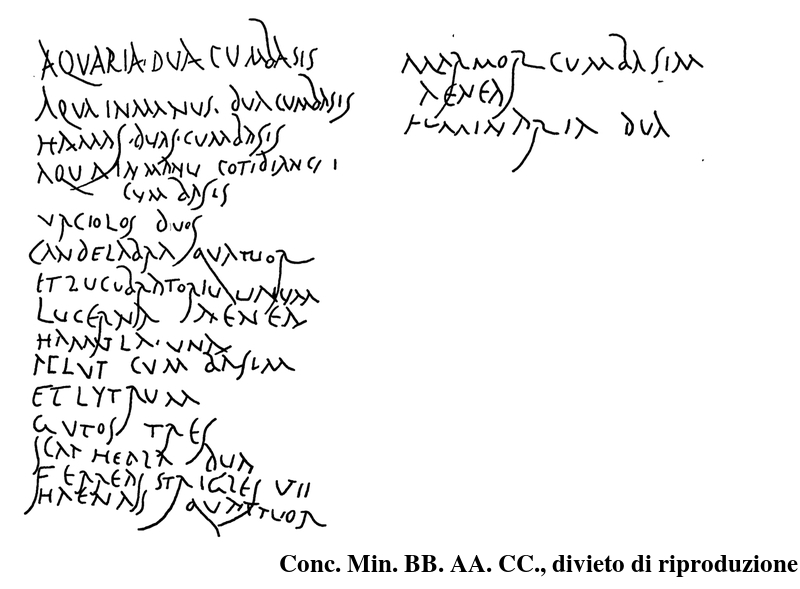 AQVARIA DVA CVM BASIS
AQVA IN MANVS DVA CVM BASIS
HAMAS DVAS CVM BASIS
AQVA IN MANV COTIDIANA
CVM BASIS
VRCIOLOS DVOS
CANDELABRA QVATTVOR
ET VNVM
LVCERNA AENEA
HAMVLA VNA
PELVI CVM BASIM
ET LVTRVM
GVTOS TRES
DVA
FERREA STRIGILES VII
HAENAS QVATTVOR
MARMOR CVM BASIM
AENEA
LVMINARIA DVA
Conc. Min. BB. AA. CC., divieto di riproduzione